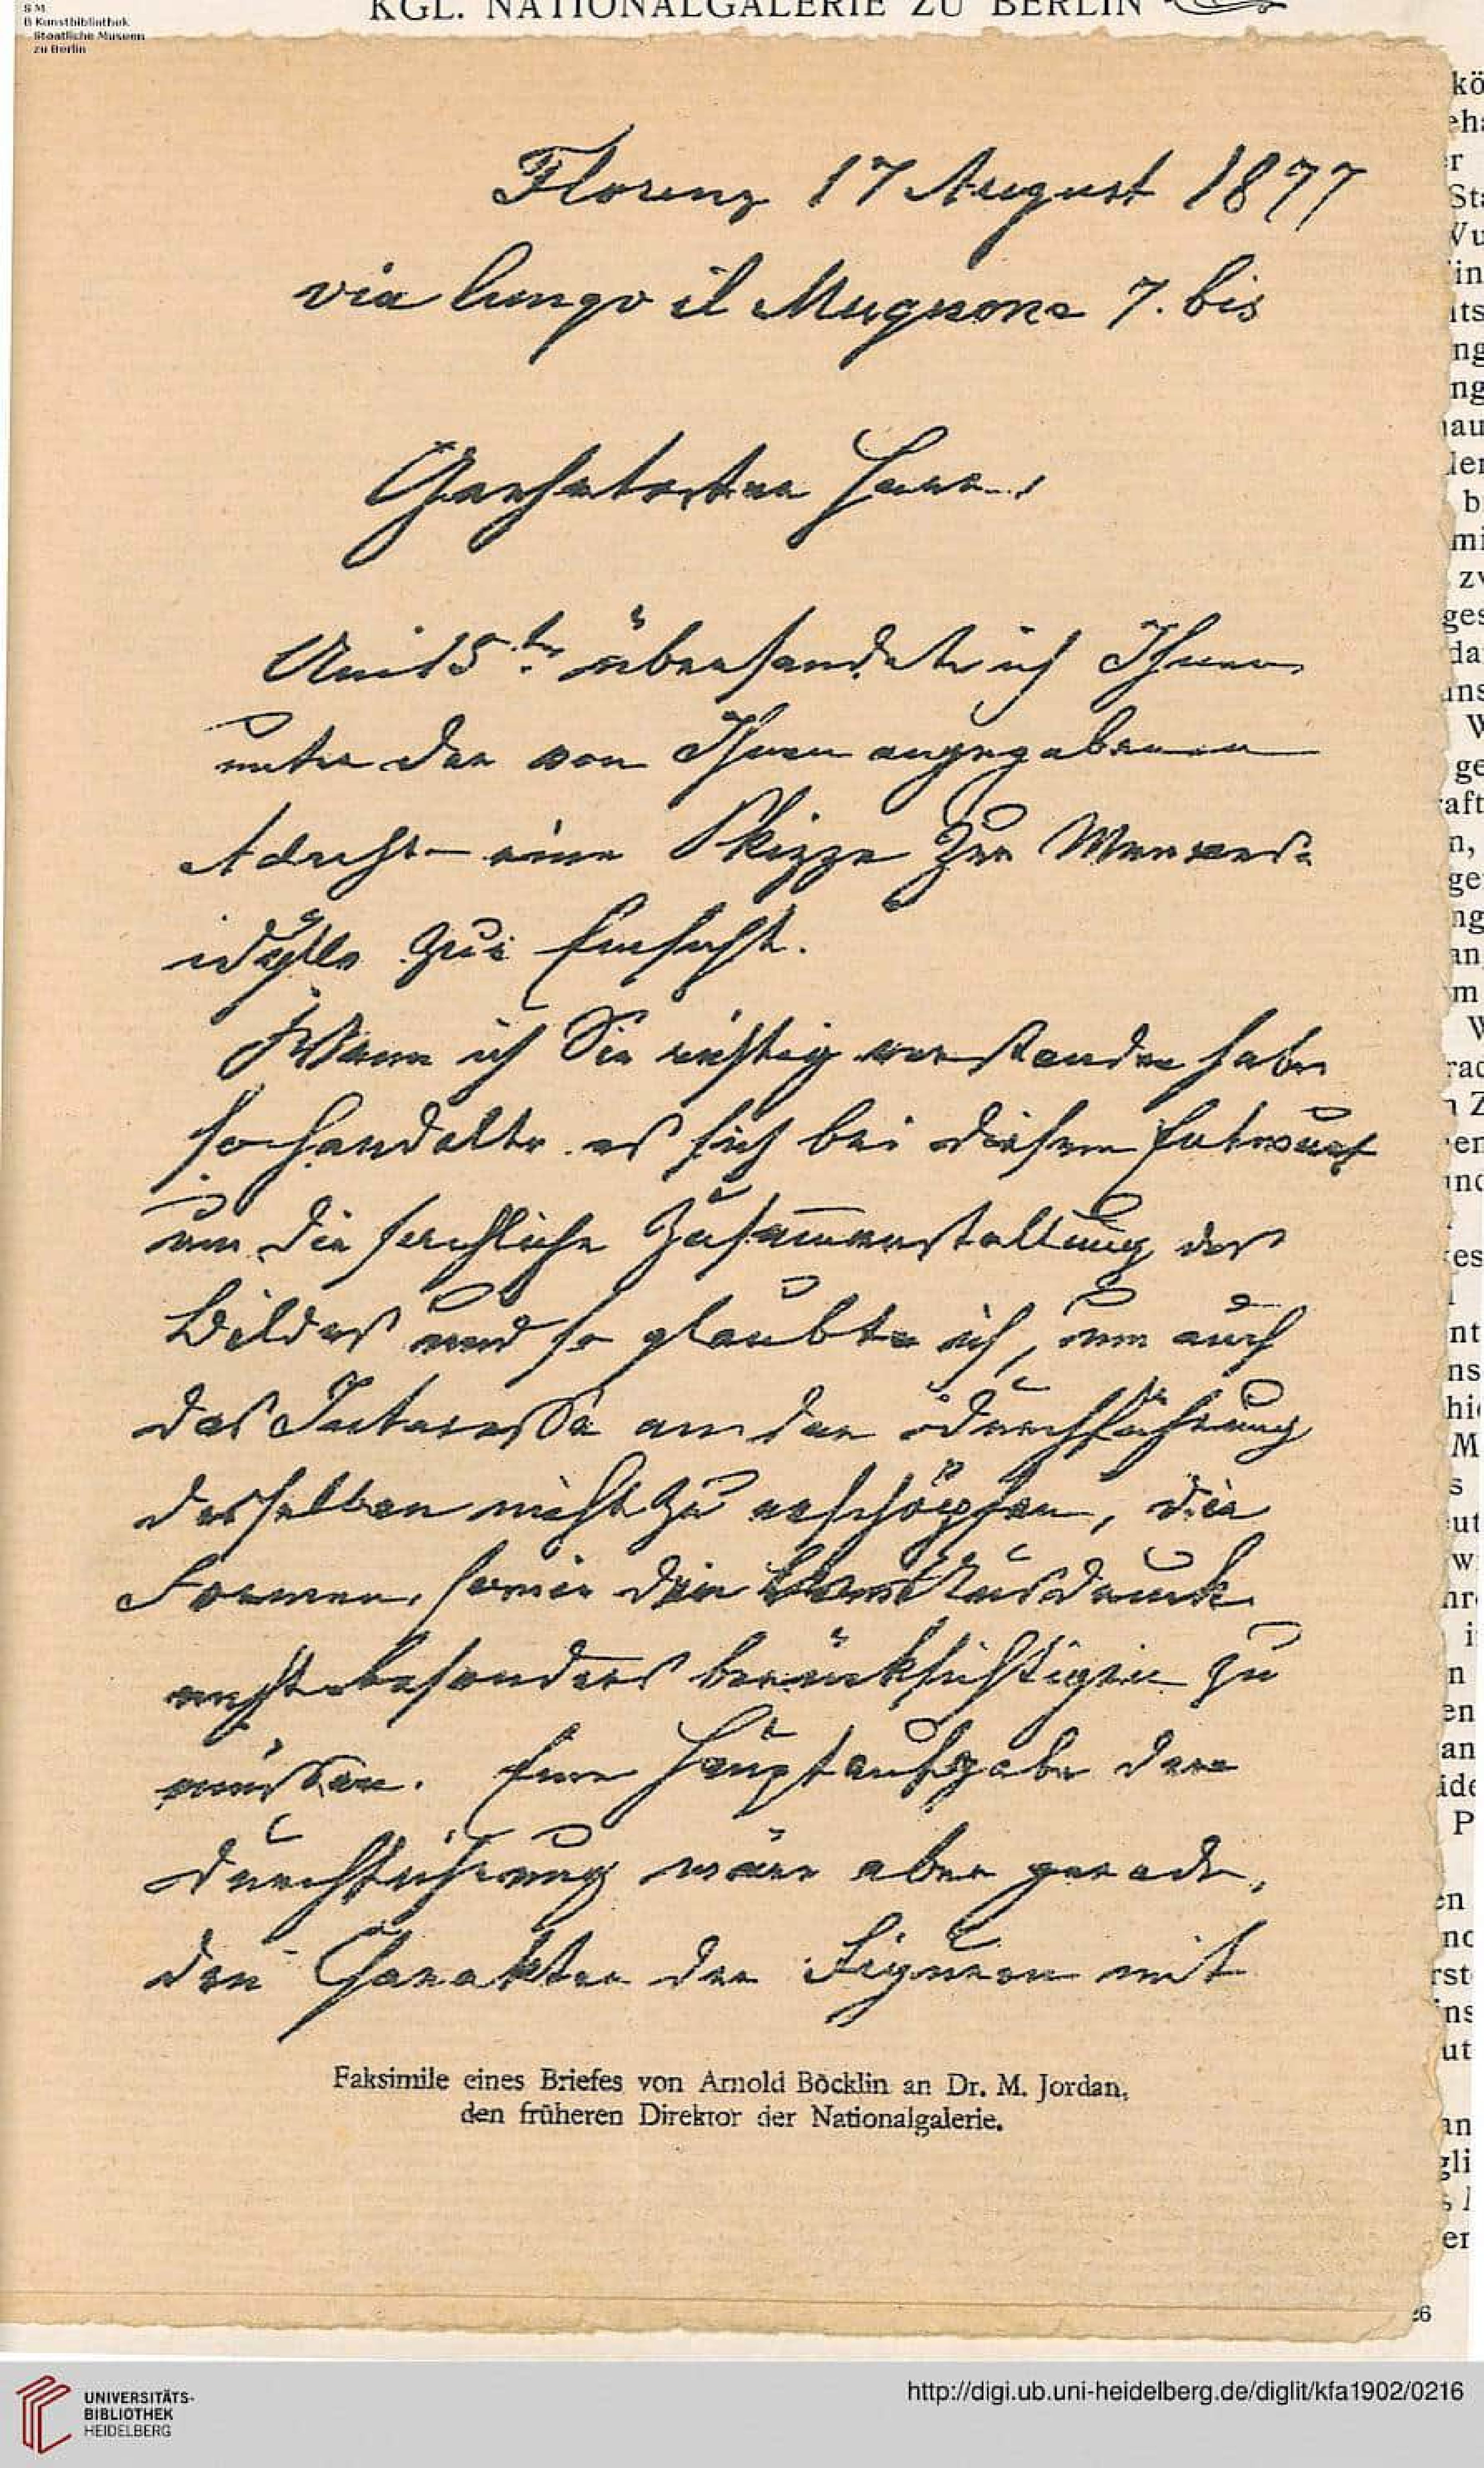 S M
B Kunstbibliothek
Staatliche Museen
zu Berlin
KGL. NATIONALGALERIE ZU BERLIN
Florenz 17 August 1877
via lungo il Mugnone 7. bis
Geehrtester Herr
Am 15ten übersandte ich Ihnen
unter der von Ihnen angegebenen
Adresse eine Skizze zur Meeres-
idylle zur Einsicht.
Wenn ich Sie richtig verstanden habe
so handelte es sich bei diesem Entwurf
um die sachliche Zusammenstellung des
Bildes und so glaubte ich, um auch
das Interesse an der Durchführung
desselben nicht zu erschöpfen, die
Formen, sowie den Ausdruck
nicht besonders berücksichtigen zu
müssen. Eine Hauptaufgabe der
Durchführung wäre aber gerade,
den Charakter der Figuren mit
Faksimile eines Briefes von Arnold Böcklin an Dr. M. Jordan,
den früheren Direktor der Nationalgalerie.
UNIVERSITÄTS-
BIBLIOTHEK
HEIDELBERG
http://digi.ub.uni-heidelberg.de/diglit/kfa1902/0216